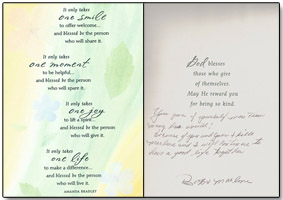 It only takes
one smile
to offer welcome...
and blessed be the person
who will share it.
It only takes
one moment
to be helpful...
and blessed be the person
who will spare it.
It only takes
one joy
to lift a spirit...
and blessed be the person
who will give it.
It only takes
one life
to make a difference...
and blessed be the person
who will live it.
AMANDA BRADLEY
God blesses
those who give
of themselves.
May He reward you
for being so kind.
You give of yourself
of you and
and it will
a good life together